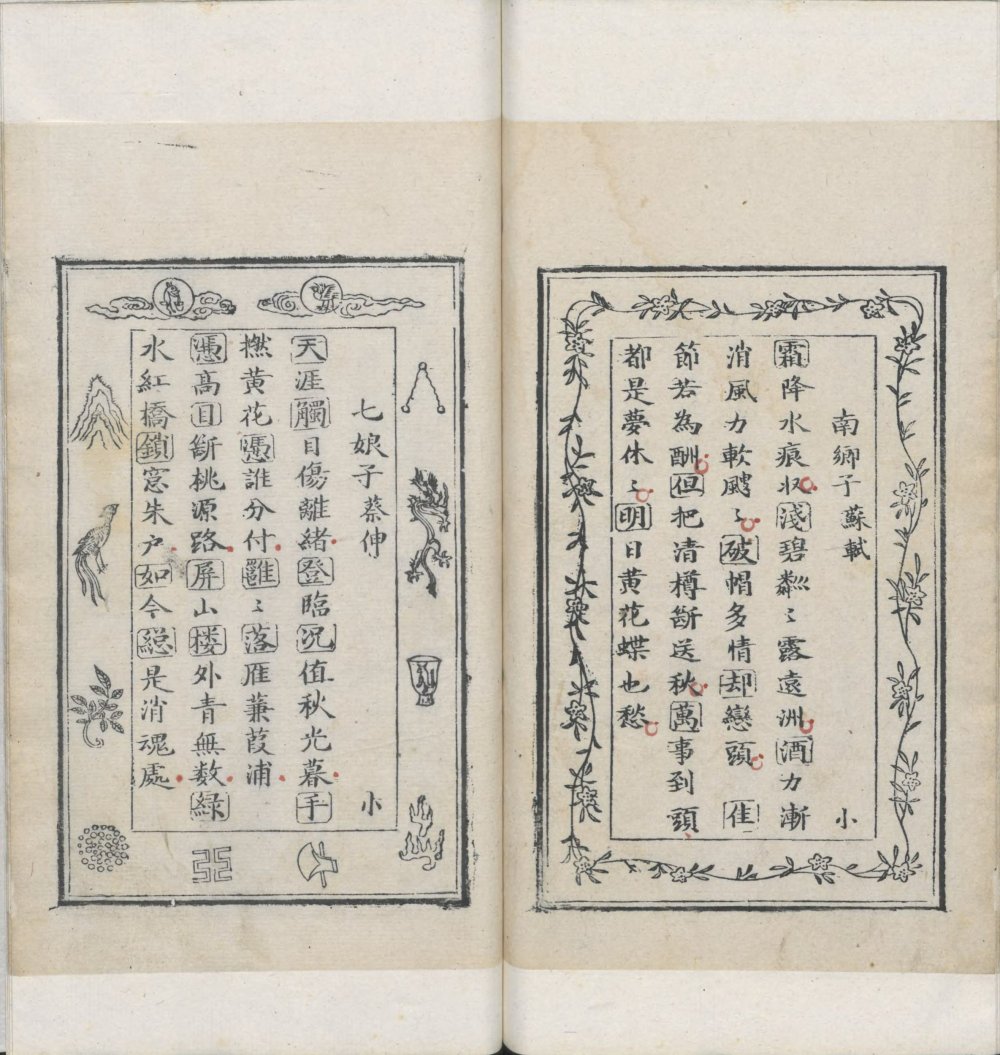 南鄉子蘇軾 小
霜降水痕収淺碧粼〻露遠洲酒力漸
消風力軟颼〻破帽多情却戀頭 佳
節若為酬但把清樽斷送秋萬事到頭
都是夢休〻明日黄花蝶也愁
七娘子蔡伸 小
天涯觸目傷離緒登臨况值秋光暮手
撚黄花慿誰分付雝〻落雁蒹葭浦
慿高目斷桃源路屏山楼外青無数緑
水紅橋鎖窓朱户如今緫是消魂處